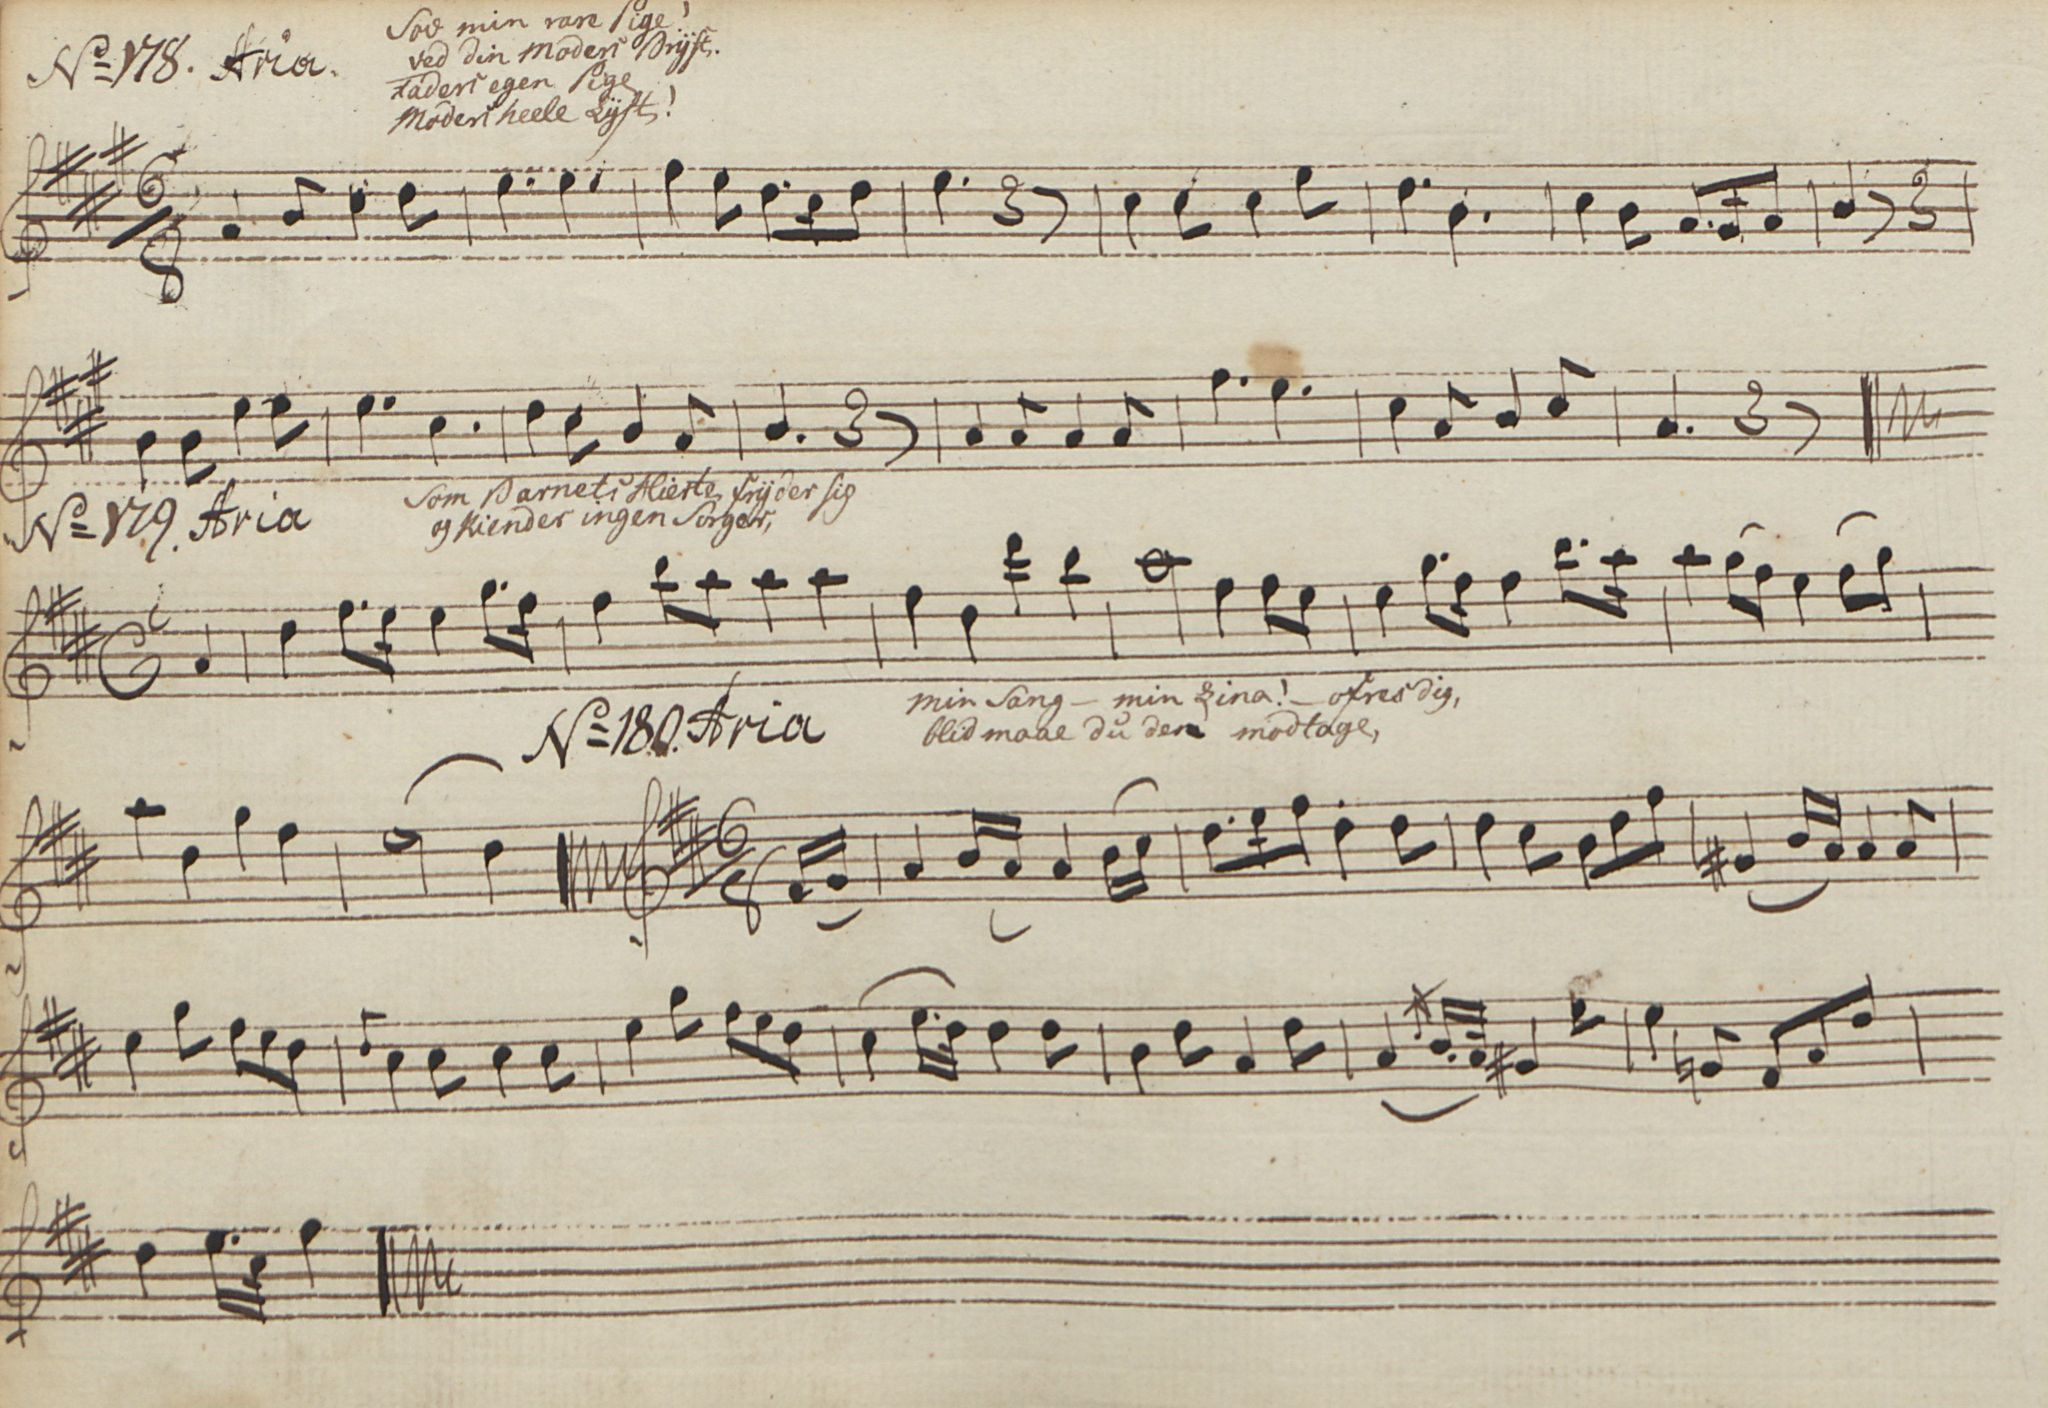 No 178. Aria.
Sov min rare Pige!
ved din Moders Bryst.
Faders egen Pige
Moders heele Lyst!
No 179. Aria
Som Barnets Hierte fryder sig
og kiender ingen Sorger,
No 180. Aria
min Sang - min Lina! - ofres dig,
blid maae du den modtage,